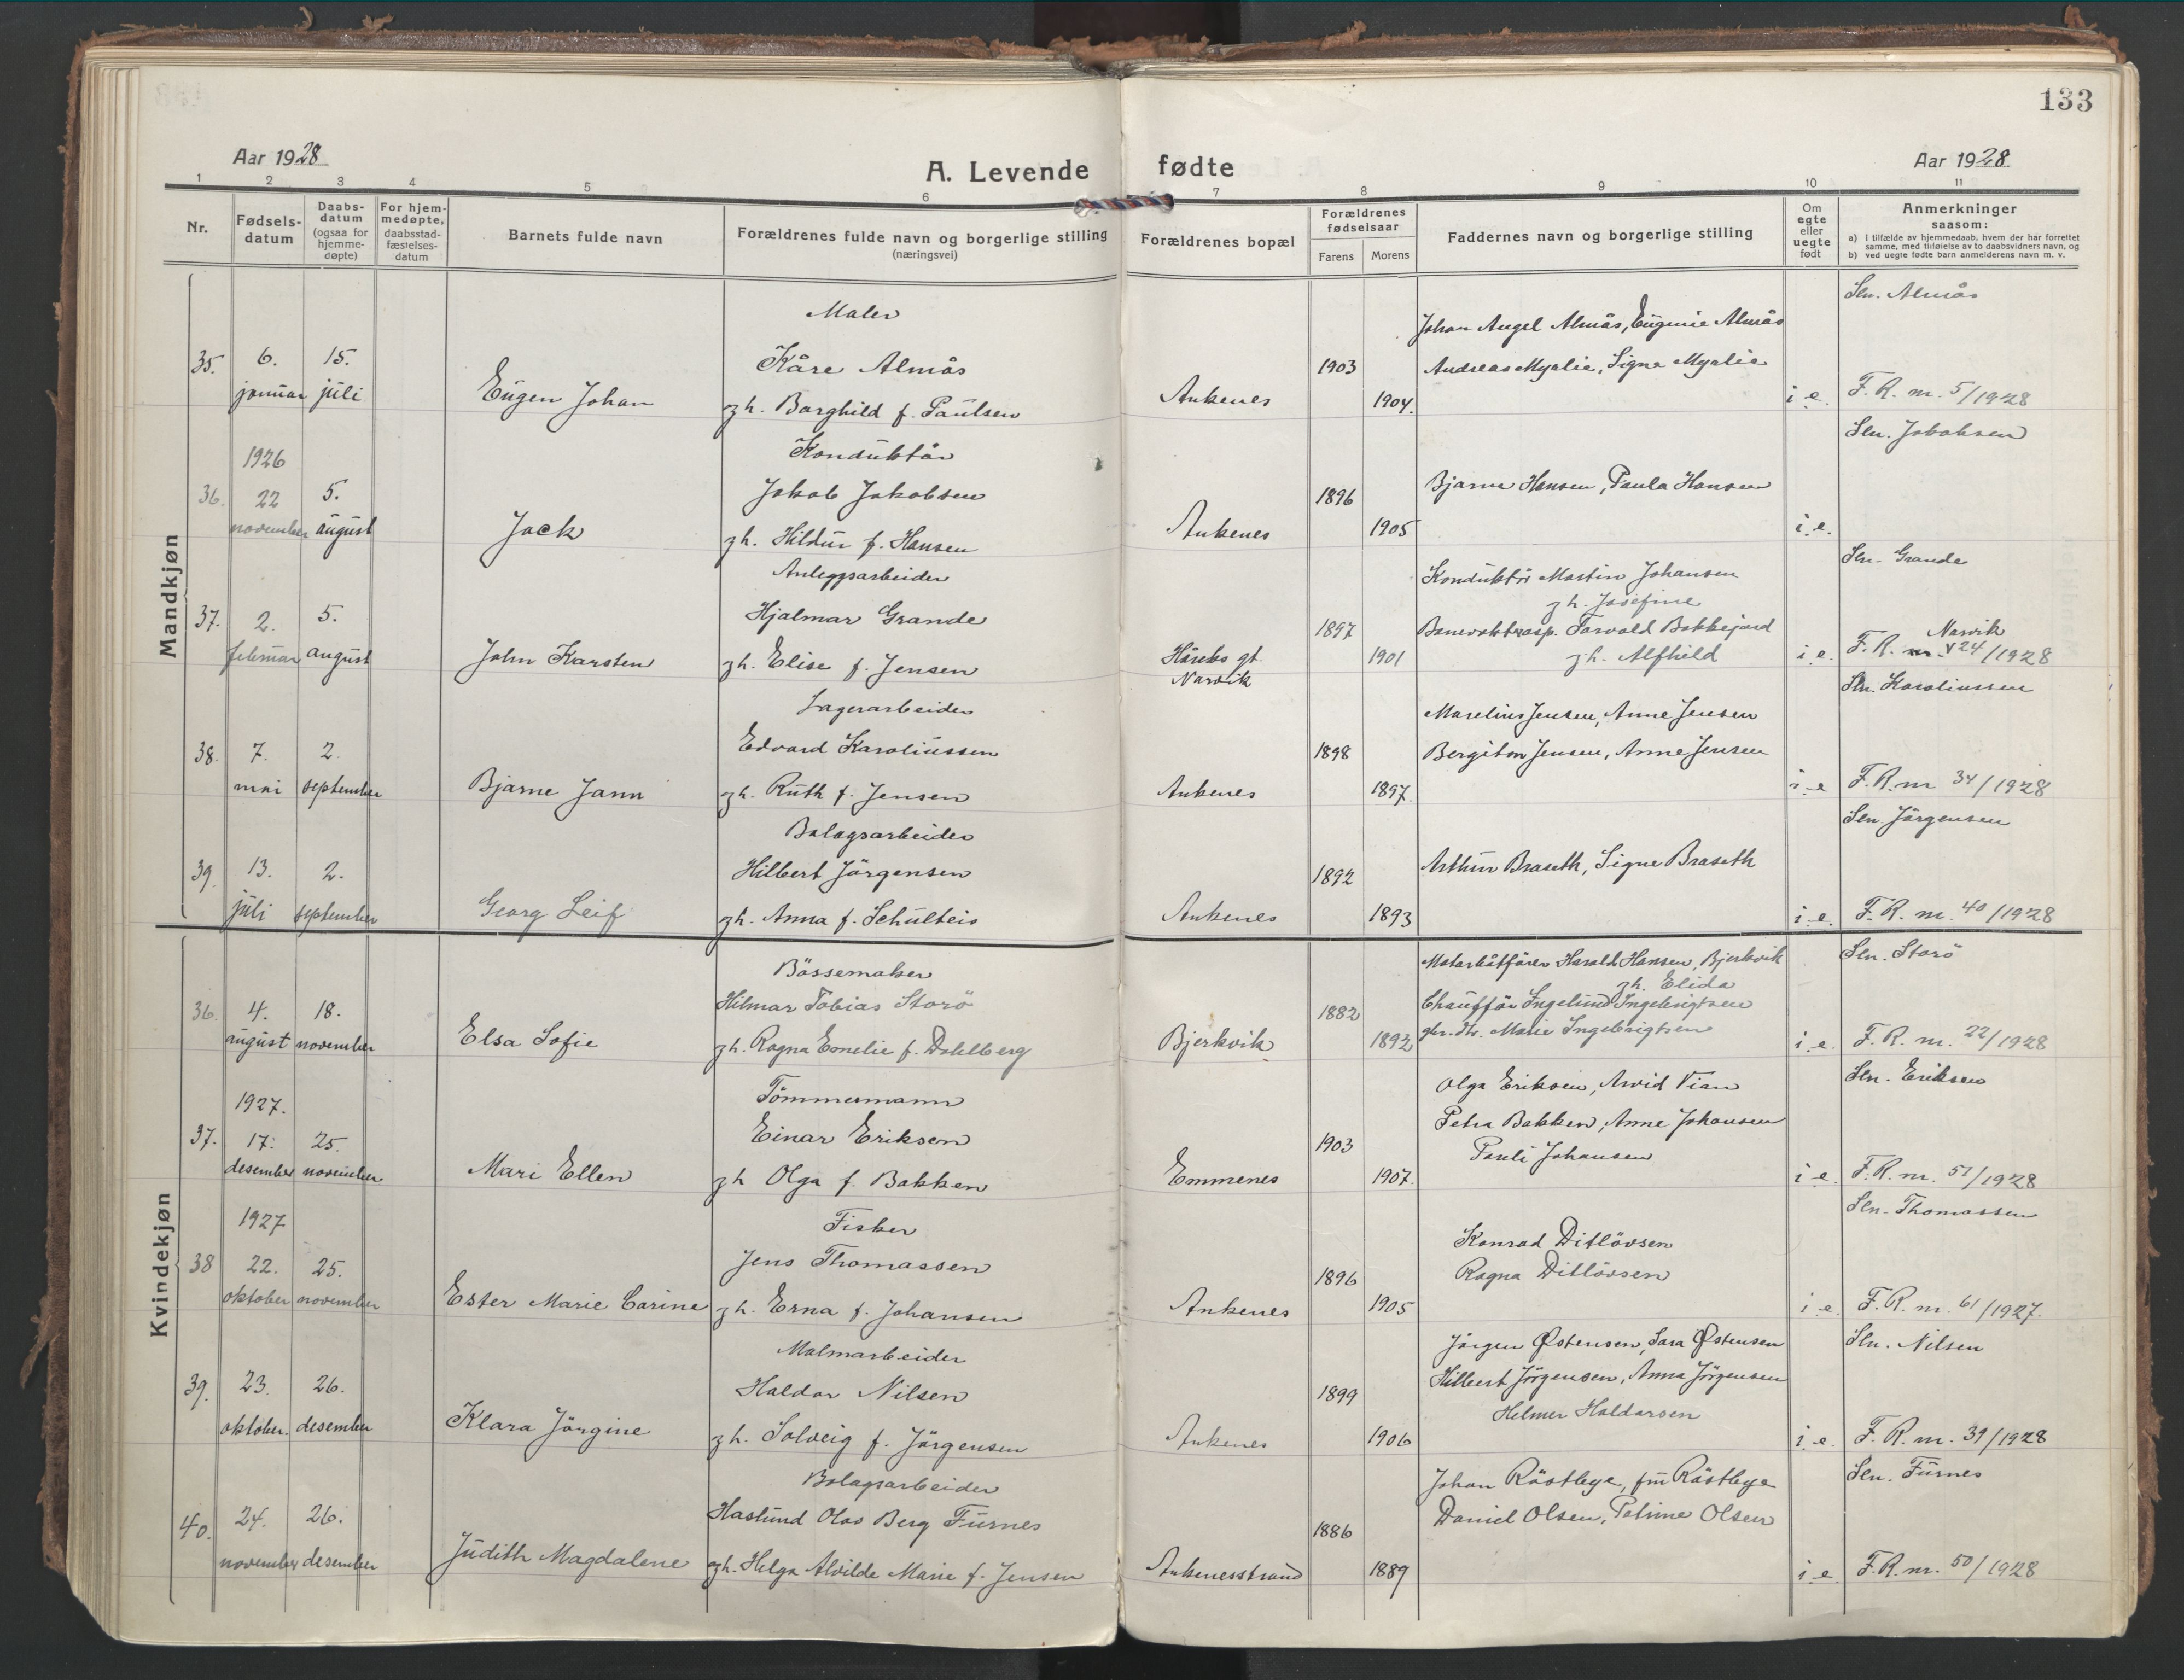 133
Aar 1928
A. Levende fødte
Aar 1928
1 2 3 4 5 6 7 8 9 10 11
Nr.
Fødsels-
datum
Daabs-
datum
(ogsaa for
hjemme-
døpte)
For hjem-
medøpte,
daabsstad-
fæstelses-
datum
Barnets fulde navn
Forældrenes fulde navn og borgerlige stilling
(næringsvei)
Forældrenes bopæl
Forældrenes
fødselsaar
Farens Morens
Faddernes navn og borgerlige stilling
Om
egte
eller
uegte
født
Anmerkninger
saasom:
a) i tilfælde av hjemmedaab, hvem der har forrettet
samme, med tilføielse av to daabsvidners navn, og
b) ved uegte fødte barn anmelderens navn m. v.
Mandkjøn
Maler
Sln. Almås
Johan Angel Almås, Eugenie Almås
35. 6. 15. Kåre Almås 1903 Andreas Myrlie, Signe Myrlie
januar juli Eugen Johan gh. Borghild f. Paulsen Ankenes 1904. i.e. F. R. nr. 5/1928
1926 Konduktør Sln. Jakobsen
36. 22 5. Jakob Jakobsen 1896 Bjarne Hansen, Paula Hansen
november august Jack gh. Hildur f. Hansen Ankenes 1905 i.e.
Anleggsarbeider Sln. Grande
Konduktør Martin Johansen
gh. Josefine
37. 2. 5. Hjalmar Grande 1897 Banevokterasp. Torvald Bakkejord Narvik
februar august John Karsten gh. Elise f. Jensen gt. 1901 gh. Alfhild i.e. F. R. nr. 24/1928
Narvik
Lagerarbeider Sln. Karoliussen
Marelius Jensen, Anne Jensen
38. 7. 2. Edvard Karoliussen 1898 Bergiton Jensen, Anne Jensen
mai september Bjarne Jann gh. Ruth f. Jensen Ankenes 1897. i.e. F. R. nr 34/1928
Bolagsarbeider Sln. Jörgensen
39. 13. 2. Hilbert Jörgensen 1892 Arthur Braseth, Signe Braseth
juli september Georg Leif gh. Anna f. Schulteis Ankenes 1893 i.e. F. R. nr. 40/1928
Kvindekjøn
Bössemaker Motorbåtförer Harald Hansen, Bjerkvik Sln. Storö
gh. Elida
36. 4. 18. Hilmar Tobias Storö 1882 Chaufför Ingelund Ingebrigtsen
august november Elsa Sofie gh. Ragna Emelie f. Dahlberg Bjerkvik 1892 Marie Ingebrigtsen i.e. F. R. nr. 22/1928
1927. Tömmermann Olga Eriksen, Arvid Vian Sln. Eriksen
37. 17. 25. Einar Eriksen 1903 Petra Bakken, Anne Johansen
Pauli Johansen
desember november Mari Ellen gh Olga f. Bakken Emmenes 1907. i.e. F. R. nr. 51/1928
1927 Fisker Sln. Thomassen
Konrad Ditlövsen
38 22. 25. Jens Thomassen 1896 Ragna Ditlövsen
oktober november Ester Marie Carine gh. Erna f. Johansen Ankenes 1905 i.e. F. R. nr. 61/1927.
Malmarbeider Jörgen Østensen, Sara Østensen Sln. Nilsen
39. 23. 26. Haldor Nilsen 1899 Hilbert Jörgensen, Anna Jörgensen
Helmer Haldorsen
oktober. desember Klara Jörgine gh. Solveig f. Jörgensen Ankenes 1906 i.e. F. R. nr. 39/1928
Bolagsarbeider Johan Röstbye, fru Röstbye Sln. Furnes
40. 24. 26. Haslund Olav Berg Furnes 1886 Daniel Olsen, Petrine Olsen
november desember Judith Magdalene gh. Helga Alvilde Marie f. Jensen Ankenesstrand 1889 i.e. F. R. nr. 50/1928